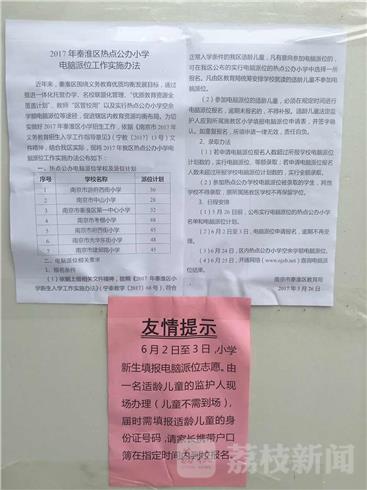 2017 年秦淮区热点公办小学
电脑派位工作实施办法
近年来，秦淮区围绕义务教育优质均衡发展目标，通过
推进一体化运营办学、名校联盟化管理、“优质教育资源全
覆盖计划”、教师“区管校用”以及实行热点公办小学空余
学额电脑派位等途径，促进辖区内教育资源均衡布局。为切
实做好 2017 年秦淮区小学招生工作，依据《南京市 2017 年
义务教育招生入学工作指导意见》（宁教
文件
精神，结合我区实际，现将 2017 年秦淮区热点公办小学电
脑派位工作实施办法公布如下：
一、热点公办小学电脑派位学校及派位计划
序号 学校名称 派位计划
1 南京市游府西街小学 30
2 南京市中山小学 28
3 南京市秦淮区第一中心小学 32
4 南京市考棚小学 48
5 南京市府西街小学 45
6 南京市光华东街小学 48
7 南京市建邺路小学 45
二、电脑派位相关要求
1．报名条件
（1）依据上级相关文件精神，按照《2017 年秦淮区小
学新生入学工作实施办法》（宁秦教字〔2017〕68 号），符合
正常入学条件的我区适龄儿童，凡有意向参加电脑派位的，可
在我区公布的实行电脑派位的热点公办小学中选择一所
报名。凡由区教育局统筹安排学校就读的适龄儿童不参加电
脑派位。
（2）参加电脑派位的适龄儿童，必须在规定时间进行
电脑派位报名，逾期未报名的，不得补报。适龄儿童法定监
护人应到所属施教区小学填报电脑派位申请表，并签字确
认。如重复报名，所填申请一律无效，责任自负。
2．录取办法
（1）若申请电脑派位报名人数超过所报学校电脑派位
计划数的，实行电脑派位，等额录取；若申请报名人数
未超过所报学校电脑派位计划数的，实行全额录取。
（2）参加热点公办小学电脑派位被录取的学生，其他
学校不得录取，原施教区学校不再保留学位。
3．日程安排
（1）5 月 26 日前，公布实行电脑派位的热点公办小学
名单和电脑派位计划。
（2）6 月 2 日至 3 日，电脑派位申请报名，逾期不再受
理。
（3）6 月 24 日，区内热点公办小学空余学额电脑派位。
（4）6 月 25 日，开通网络（www.njqxb.net）查询电脑派
位结果。
南京市秦淮区教育局
2017 年 5 月 26 日
友情提示
6 月 2 日至 3 日，小学
新生填报电脑派位志愿。由
一名适龄儿童的监护人现
场办理（儿童不需到场），
届时需填报适龄儿童的身
份证号码，请家长携带户口
簿在指定时间内到校报名。
荔枝新闻